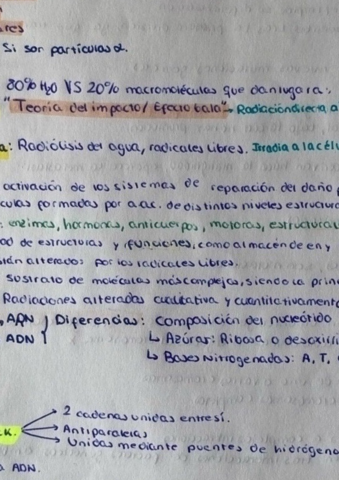 res
Si son partículas α.
80% H2O VS 20% macromoléculas que dan lugar a:
"Teoría del impacto/ Efecto bala" → Radiación directa a
a: Radiólisis del agua, radicales libres. Irradia a la célu
activación de los sistemas de reparación del daño p
culas formadas por a.ac. de distintos niveles estructura
: enzimas, hormonas, anticuerpos, motoras, estructural
ad de estructuras y funciones, como almacén de en y
án alterados por los radicales libres.
sustrato de moléculas más complejas, siendo la prin
Radiaciones alteradas cualitativa y cuantitativament
ARN Diferencias: Composición del nucleótido
ADN ↳ Azúcar: Ribosa o desoxirri
↳ Bases Nitrogenadas: A, T,
→ 2 cadenas unidas entre sí.
CK. → Antiparalelas
→ Unidas mediante puentes de hidrógeno
ADN.